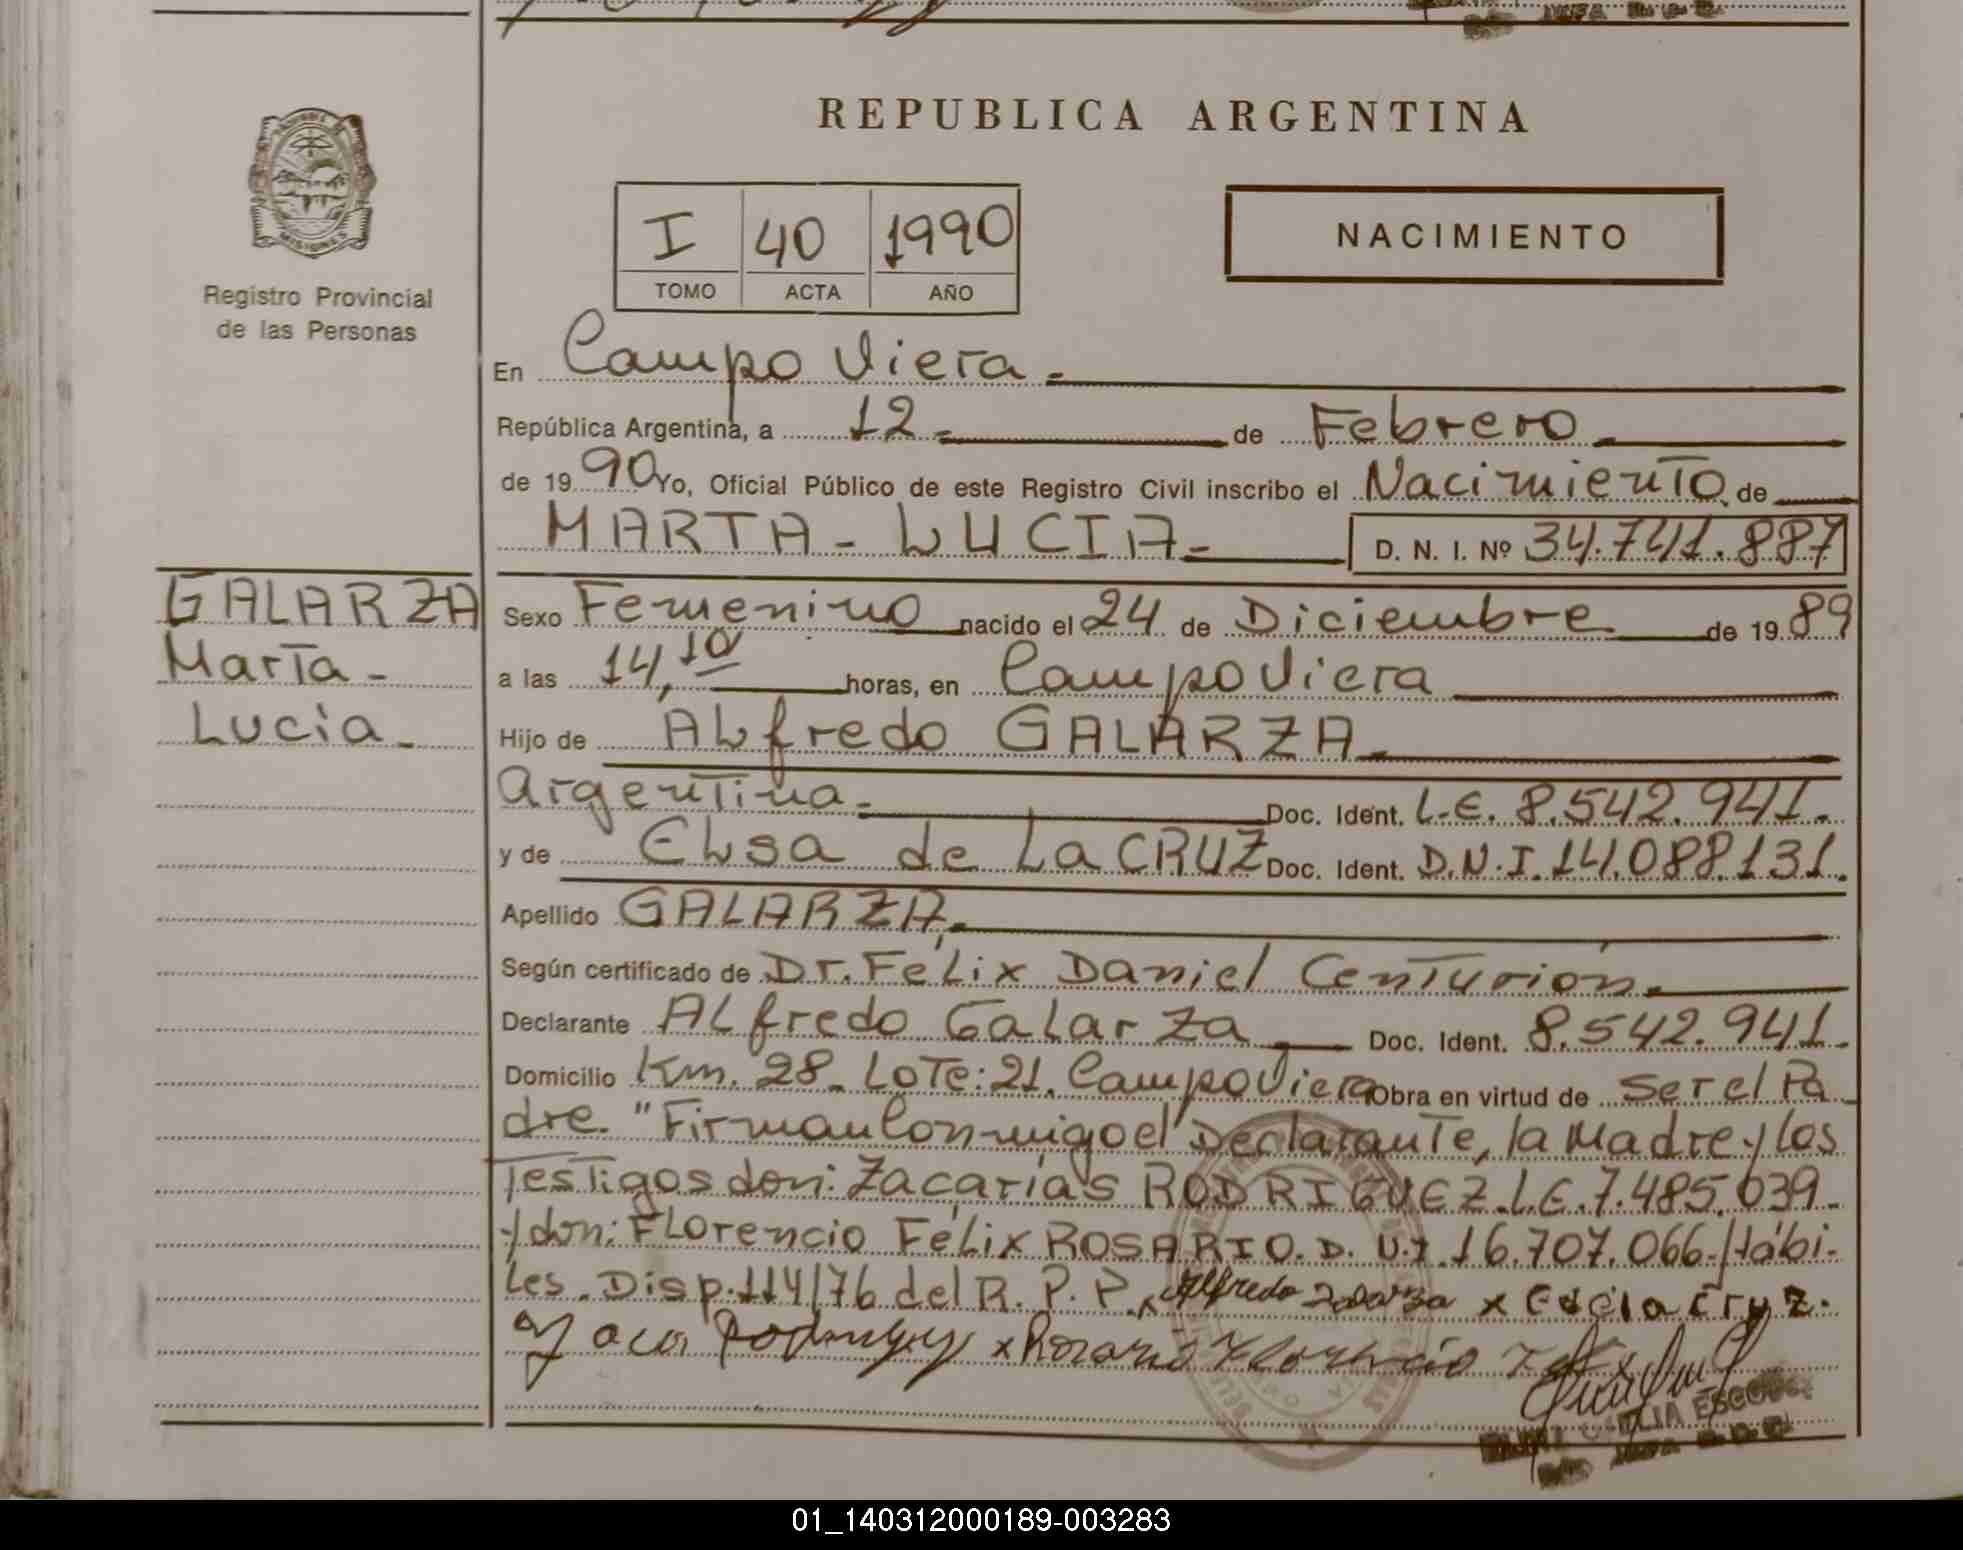 REPUBLICA ARGENTINA
MISIONES
Registro Provincial
de las Personas
I 40 1990
TOMO ACTA AÑO
NACIMIENTO
En Campo Viera.
República Argentina, a 12 de Febrero
de 1990 Yo, Oficial Público de este Registro Civil inscribo el Nacimiento de
MARTA - LUCIA D. N. I. Nº 34.741.887
GALARZA
Marta -
Lucia -
Sexo Femenino nacido el 24 de Diciembre de 1989
a las 14,10 horas, en Campo Viera
Hijo de ALfredo GALARZA
Argentina. Doc. Ident. L.E. 8.542.941.
y de ELsa de La CRUZ Doc. Ident. D.N.I. 14.088.131.
Apellido GALARZA
Según certificado de Dr. FéLix Daniel Centurión.
Declarante ALfredo GaLarza Doc. Ident. 8.542.941.
Domicilio Km. 28. Lote: 21. Campo Viera Obra en virtud de ser el Pa
dre. "Firman Conmigo el Declarante, la Madre y los
Testigos don: Zacarías RODRIGUEZ. L.E. 7.485.039.
y don: FLorencio FéLix ROSARIO. D.N.I 16.707.066. Hábi-
Les. Disp. 114/76 del R. P. P. x Alfredo Galarza x
x Rosario Florencio
JEFA
01_140312000189-003283